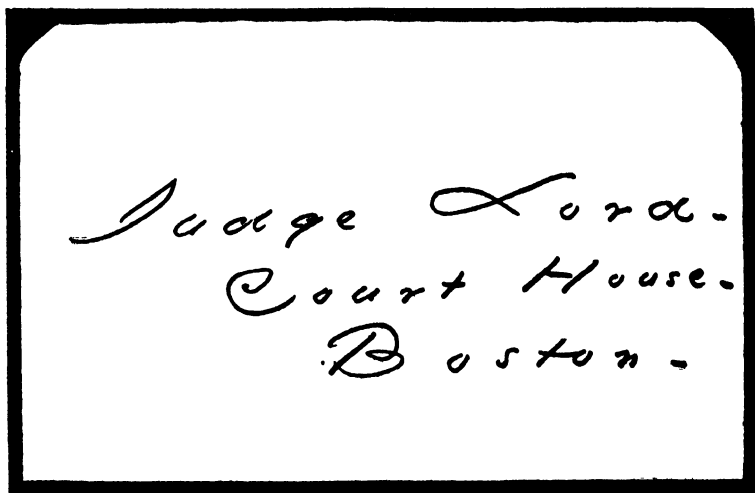 Judge Lord.
Court House.
Boston.